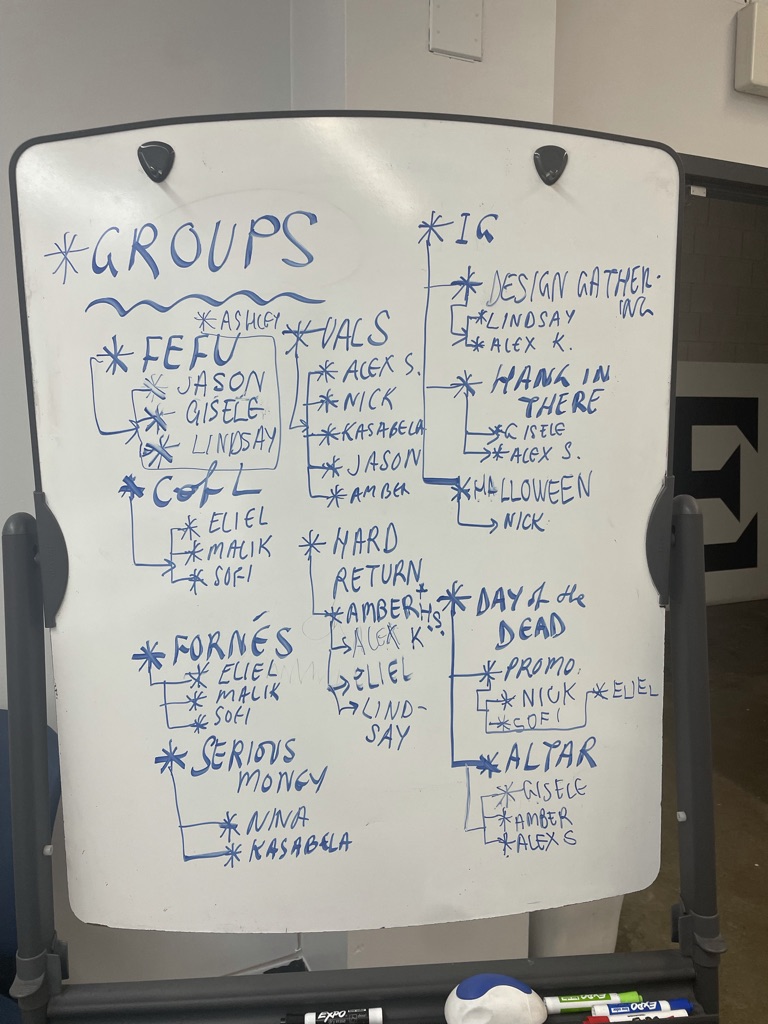 *GROUPS
*ASHLEY
*FEFU
*JASON
*GISELE
*LINDSAY
*COFL
*ELIEL
*MALIK
*SOFI
*FORNÉS
*ELIEL
*MALIK
*SOFI
*SERIOUS
MONEY
*NINA
*KASABELA
*VALS
*ALEX S.
*NICK
*KASABELA
*JASON
*AMBER
*HARD
RETURN
*AMBER +
ALEX K
ELIEL
LIND-
SAY
*IG
*DESIGN GATHER-
ING
*LINDSAY
*ALEX K.
*HANG IN
THERE
*GISELE
*ALEX S.
*HALLOWEEN
NICK
*DAY of the
DEAD
*PROMO.
*NICK
*SOFI
*ELIEL
*ALTAR
*GISELE
*AMBER
*ALEX S
E
EXPO
EXPO
EXPO